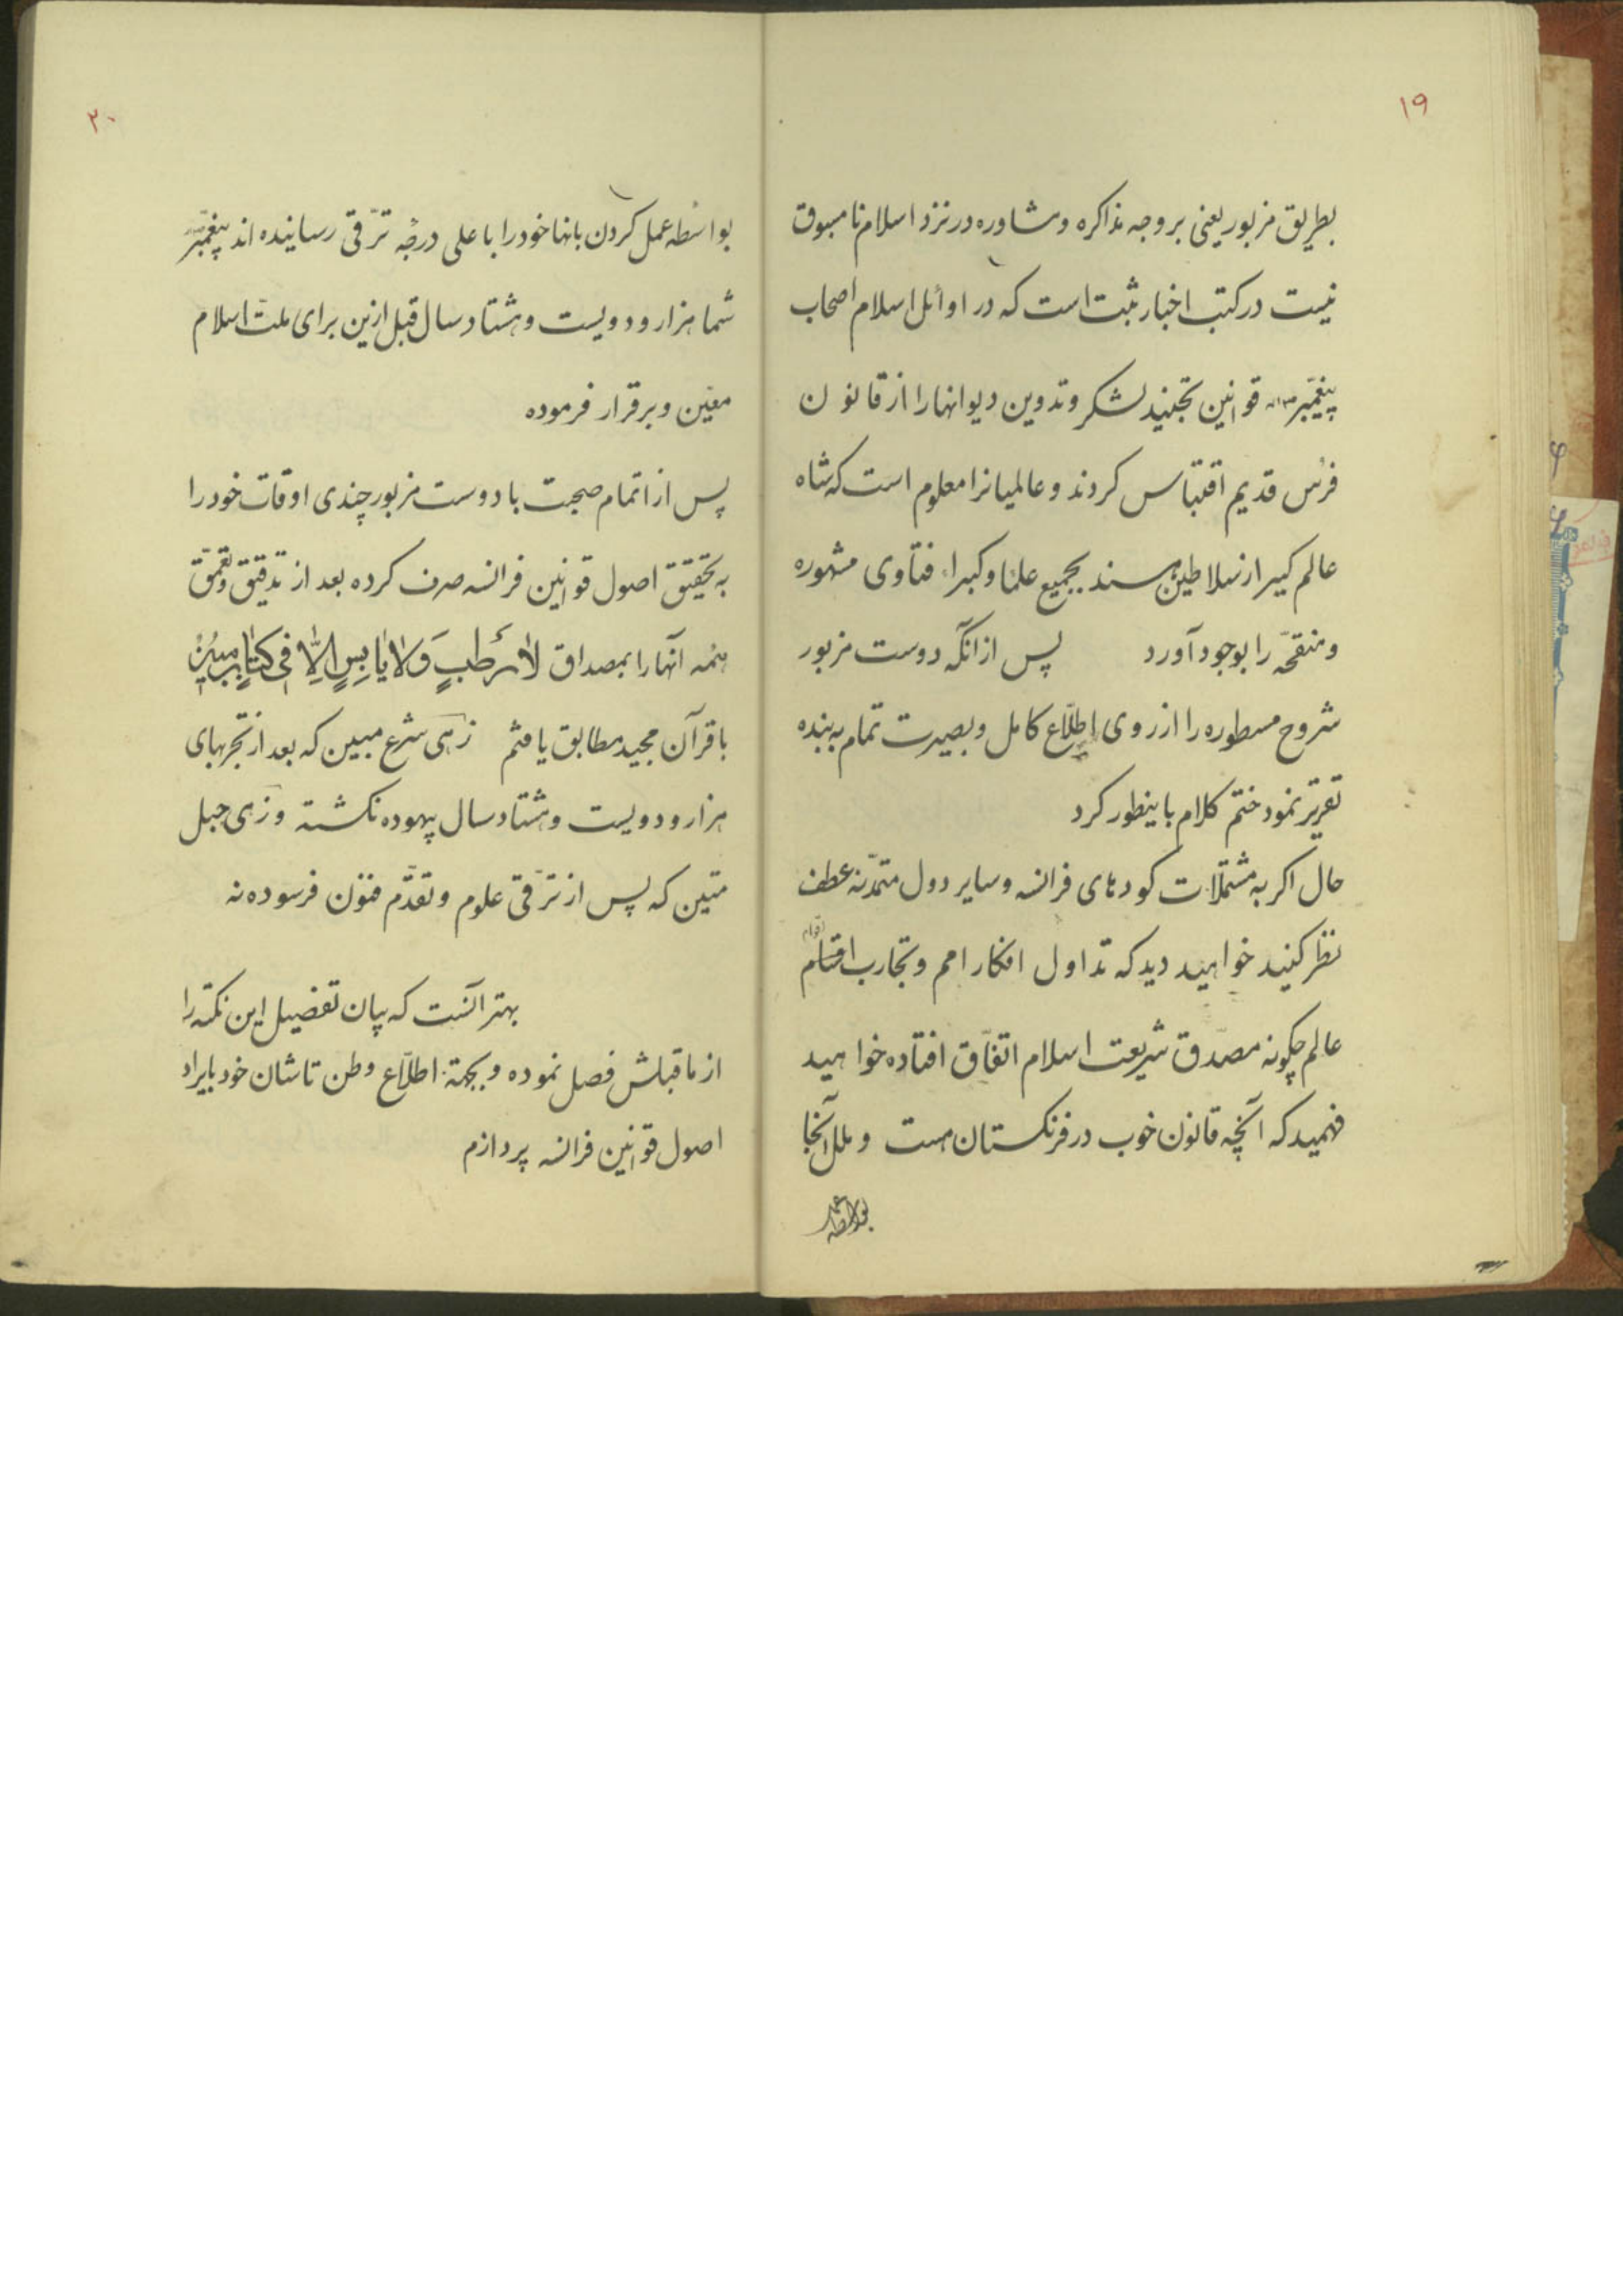 ۱۹
بطریق مزبور یعنی بر وجه مذاکره ومشاوره در نزد اسلام نامسبوق
نیست در کتب اخبار ثبت است که در اوائل اسلام اصحاب
پیغمبر قوانین تجنید لشکر وتدوین دیوانها را از قانون
فرس قدیم اقتباس کردند و عالمیانرا معلوم است که شاه
عالم کیر از سلاطین هند بجمیع علما وکبراء فتاوی مشهوره
ومنقحّه را بوجود آورد پس از آنکه دوست مزبور
شروح مسطوره را از روی اطلّاع کامل وبصیرت تمام به بنده
تقریر نمود ختم کلام باینطور کرد
حال اکر به مشتملات کودهای فرانسه وسایر دول متمدّنه عطف
نظر کنید خواهید دید که تداول افکار امم وتجارب اقوام
عالم چکونه مصدّق شریعت اسلام اتفّاق افتاده خواهید
فهمید که آنچه قانون خوب در فرنکستان هست وملل آنجا
بواسطه عمل
۲۰
بواسطه عمل کردن بانها خود را باعلی درجه ترّقی رسانیده اند پیغمبر
شما هزار و دویست وهشتاد سال قبل ازین برای ملت اسلام
معیّن وبرقرار فرموده
پس از اتمام صحبت با دوست مزبور چندی اوقات خود را
به تحقیق اصول قوانین فرانسه صرف کرده بعد از تدقیق وتعمّق
همه آنها را بمصداق لاٰ رَطبٍ وَلاٰ یاٰبِسٍ اِلاّٰ فی کتاٰبٍ مبینٍ
با قرآن مجید مطابق یافتم زهی شرع مبین که بعد از تجربهای
هزار و دویست وهشتاد سال بیهوده نکشته وزهی حبل
متین که پس از ترّقی علوم وتقدّم فنون فرسوده نه
بهتر آنست که بیان تفضیل این نکته را
از ماقبلش فصل نموده وبجهة اطلّاع وطن تاشان خود بایراد
اصول قوانین فرانسه پردازم